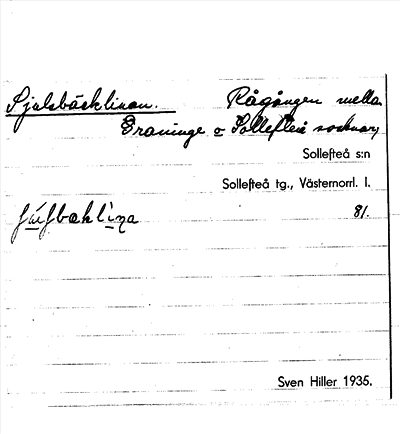 Sjulsbäcklinan. Rågången mella
Graninge o Sollefteå socknar,
Sollefteå s:n
Sollefteå tg., Västernorrl. l.
81.
Sven Hiller 1935.